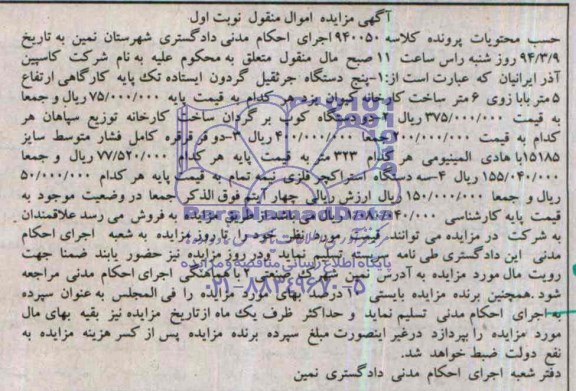 آگهی مزایده اموال منقول نوبت اول
حسب محتویات پرونده کلاسه ۹۴۰۰۵۰ اجرای احکام مدنی دادگستری شهرستان نمین به تاریخ
۹۴/۳/۹ روز شنبه راس ساعت ۱۱ صبح مال منقول متعلق به محکوم علیه به نام شرکت کاسپین
آذر ایرانیان که عبارت است از: ۱-پنج دستگاه جرثقیل گردون ایستاده تک پایه کارگاهی ارتفاع
۵ متر با بازوی ۶ متر ساخت کارخانه کیوان یزد هر کدام به قیمت پایه ۷۵/۰۰۰/۰۰۰ ریال و جمعا
به قیمت ۳۷۵/۰۰۰/۰۰۰ ریال ۲-دو دستگاه کوب بر گردان ساخت کارخانه توزیع سپاهان هر
کدام به قیمت ۲۰۰/۰۰۰/۰۰۰ جمعا ۴۰۰/۰۰۰/۰۰۰ ریال ۳-دو قرقره کامل فشار متوسط سایز
۱۵۱۸۵ با هادی المینیومی هر کدام ۳۲۳ متر به قیمت پایه هر کدام ۷۷/۵۲۰/۰۰۰ ریال و جمعا
۱۵۵/۰۴۰/۰۰۰ ریال ۴-سه دستگاه استراکچر فلزی نیمه تمام به قیمت پایه هر کدام ۵۰/۰۰۰/۰۰۰
ریال و جمعا ۱۵۰/۰۰۰/۰۰۰ ریال ارزش ریالی چهار آیتم فوق الذکر جمعا در وضعیت موجود به
قیمت پایه کارشناسی ۱/۰۸۰/۰۴۰/۰۰۰ ریال می باشد از طریق مزایده به فروش می رسد علاقمندان
به شرکت در مزایده می توانند قیمت مورد نظر خود را تا روز مزایده به شعبه اجرای احکام
مدنی این دادگستری طی نامه سربسته تسلیم نماید و در روز مزایده نیز حضور یابند ضمنا جهت
رویت مال مورد مزایده به آدرس نمین شهرک صنعتی ۲ با هماهنگی اجرای احکام مدنی مراجعه
شود. همچنین برنده مزایده بایستی ۱۰ درصد بهای مورد مزایده را فی المجلس به عنوان سپرده
به اجرای احکام مدنی تسلیم نماید و حداکثر ظرف یک ماه از تاریخ مزایده نیز بقیه بهای مال
مورد مزایده را بپردازد درغیر اینصورت مبلغ سپرده برنده مزایده پس از کسر هزینه مزایده به
نفع دولت ضبط خواهد شد.
دفتر شعبه اجرای احکام مدنی دادگستری نمین
پایگاه اطلاع رسانی مناقصه و مزایده
۰۲۱-۸۸۳۴۹۶۷۰-۵